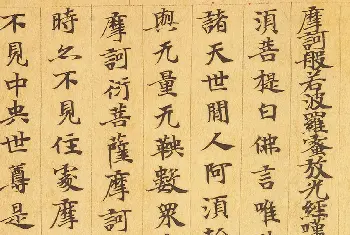 摩訶般若波羅蜜放光經嘆
須菩提白佛言唯
諸天世間人阿須
與无量无鞅數眾
摩訶衍菩薩摩訶
時亦不見住處摩
不見中央世尊是